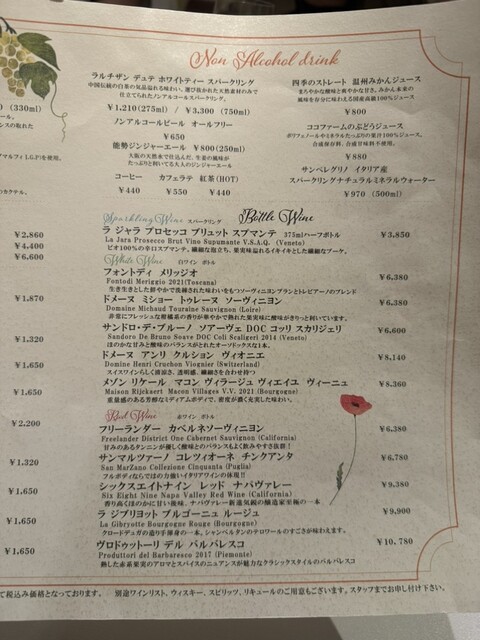 Non Alcohol drink
ラルチザン デュテ ホワイトティー スパークリング
中国伝統の白茶の気品溢れる味わい。選び抜かれた天然素材のみで
仕立てられたノンアルコールスパークリング。
¥1,210(275ml) / ¥3,300 (750ml)
ノンアルコールビール オールフリー
¥650
能勢ジンジャーエール ¥800(250ml)
大阪の天然水で仕込んだ、生姜の風味が
たっぷりと利いてる大人のジンジャーエール
コーヒー カフェラテ 紅茶(HOT)
¥440 ¥550 ¥440
四季のストレート 温州みかんジュース
まろやかな酸味と爽やかな甘さ。みかん本来の
風味を存分に味わえる国産高級100%ジュース
¥800
ココファームのぶどうジュース
ポリフェノールやミネラルたっぷりの果汁100%ジュース。
合成保存料、合成甘味料不使用。
¥880
サンペレグリノ イタリア産
スパークリングナチュラルミネラルウォーター
¥970 (500ml)
(330ml)
ール。
ンスの取れた
アマルフィI.G.P)を使用。
カクテル。
¥2.860
¥4.400
¥6.600
¥1.870
¥1.320
¥1.650
¥1.650
¥2.200
¥1.320
¥1.650
¥1.650
¥1.650
Sparkling Wine スパークリング Bottle Wine
ラ ジャラ プロセッコ ブリュット スプマンテ 375mlハーフボトル ¥3,850
La Jara Prosecco Brut Vino Supumante V.S.A.Q. (Veneto)
ビオ100%の辛口スプマンテ。繊細な泡立ち、果実味溢れるイキイキとした繊細なブーケ。
White Wine 白ワイン ボトル
フォンテディ メリッジオ ¥6,380
Fontodi Meriggio 2021(Toscana)
生き生きとした鮮やかで洗練された味わいをもつソーヴィニヨンブランとトレビアーノのブレンド
ドメーヌ ミショー トゥレーヌ ソーヴィニヨン ¥6,380
Domaine Michaud Touraine Sauvignon (Loire)
非常にフレッシュな柑橘系の香りが華やかで熟れた果実味に酸味がきりっと利いています。
サンドロ・デ・ブルーノ ソアーヴェ DOC コッリ スカリジェリ ¥6,600
Sandoro De Bruno Soave DOC Coli Scaligeri 2014 (Veneto)
ほのかな甘みと酸味のバランスがとれたオーソドックスな1本。
ドメーヌ アンリ クルション ヴィオニエ ¥8,140
Domine Henri Cruchon Viognier (Switzerland)
スイスワインらしく清涼さ、透明感、繊細さを合わせ持つ
メゾン リケール マコン ヴィラージュ ヴィエイユ ヴィーニュ ¥8,360
Maison Rijckaert Macon Villages V.V. 2021 (Bourgogne)
重量感のある芳醇なミディアムボディで、密度が濃く充実した味わい。
Red Wine 赤ワイン ボトル
フリーランダー カベルネソーヴィニヨン ¥6,380
Freelander District One Cabernet Sauvignon (California)
甘みのあるタンニンが優しく酸味とのバランスもよく飲みやすさ抜群!
サンマルツァーノ コレツィオーネ チンクアンタ ¥6,780
San MarZano Collesione Cinquanta (Puglia)
フルボディならではの力強いイタリアワインの体現!!
シックスエイトナイン レッド ナパヴァレー ¥9,380
Six Eight Nine Napa Valley Red Wine (California)
香り高くほのかに甘い後味。ナパヴァレー新進気鋭の醸造家至極の一本。
ラ ジブリヨット ブルゴーニュ ルージュ ¥9,900
La Gibryotte Bourgogne Rouge (Bourgogne)
クロードデュガの造り手渾身の一本。シャンベルタンのテロワールのすごさが味わえます。
プロドゥットーリ デル バルバレスコ ¥10,780
Produttori del Barbaresco 2017 (Piemonte)
熟した赤系果実のアロマとスパイスのニュアンスが魅力なクラシックスタイルのバルバレスコ
て税込み価格となっております。 別途ワインリスト、ウィスキー、スピリッツ、リキュールのご用意もございます。スタッフまでお申し付け下さい。